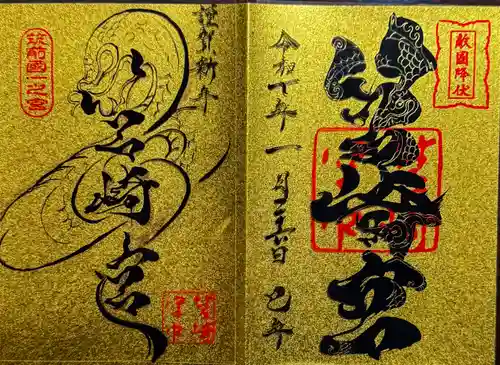 敵國降伏
筥崎宮
令和七年一月二六日 巳年
謹賀新年
筥崎宮
筑前國一之宮